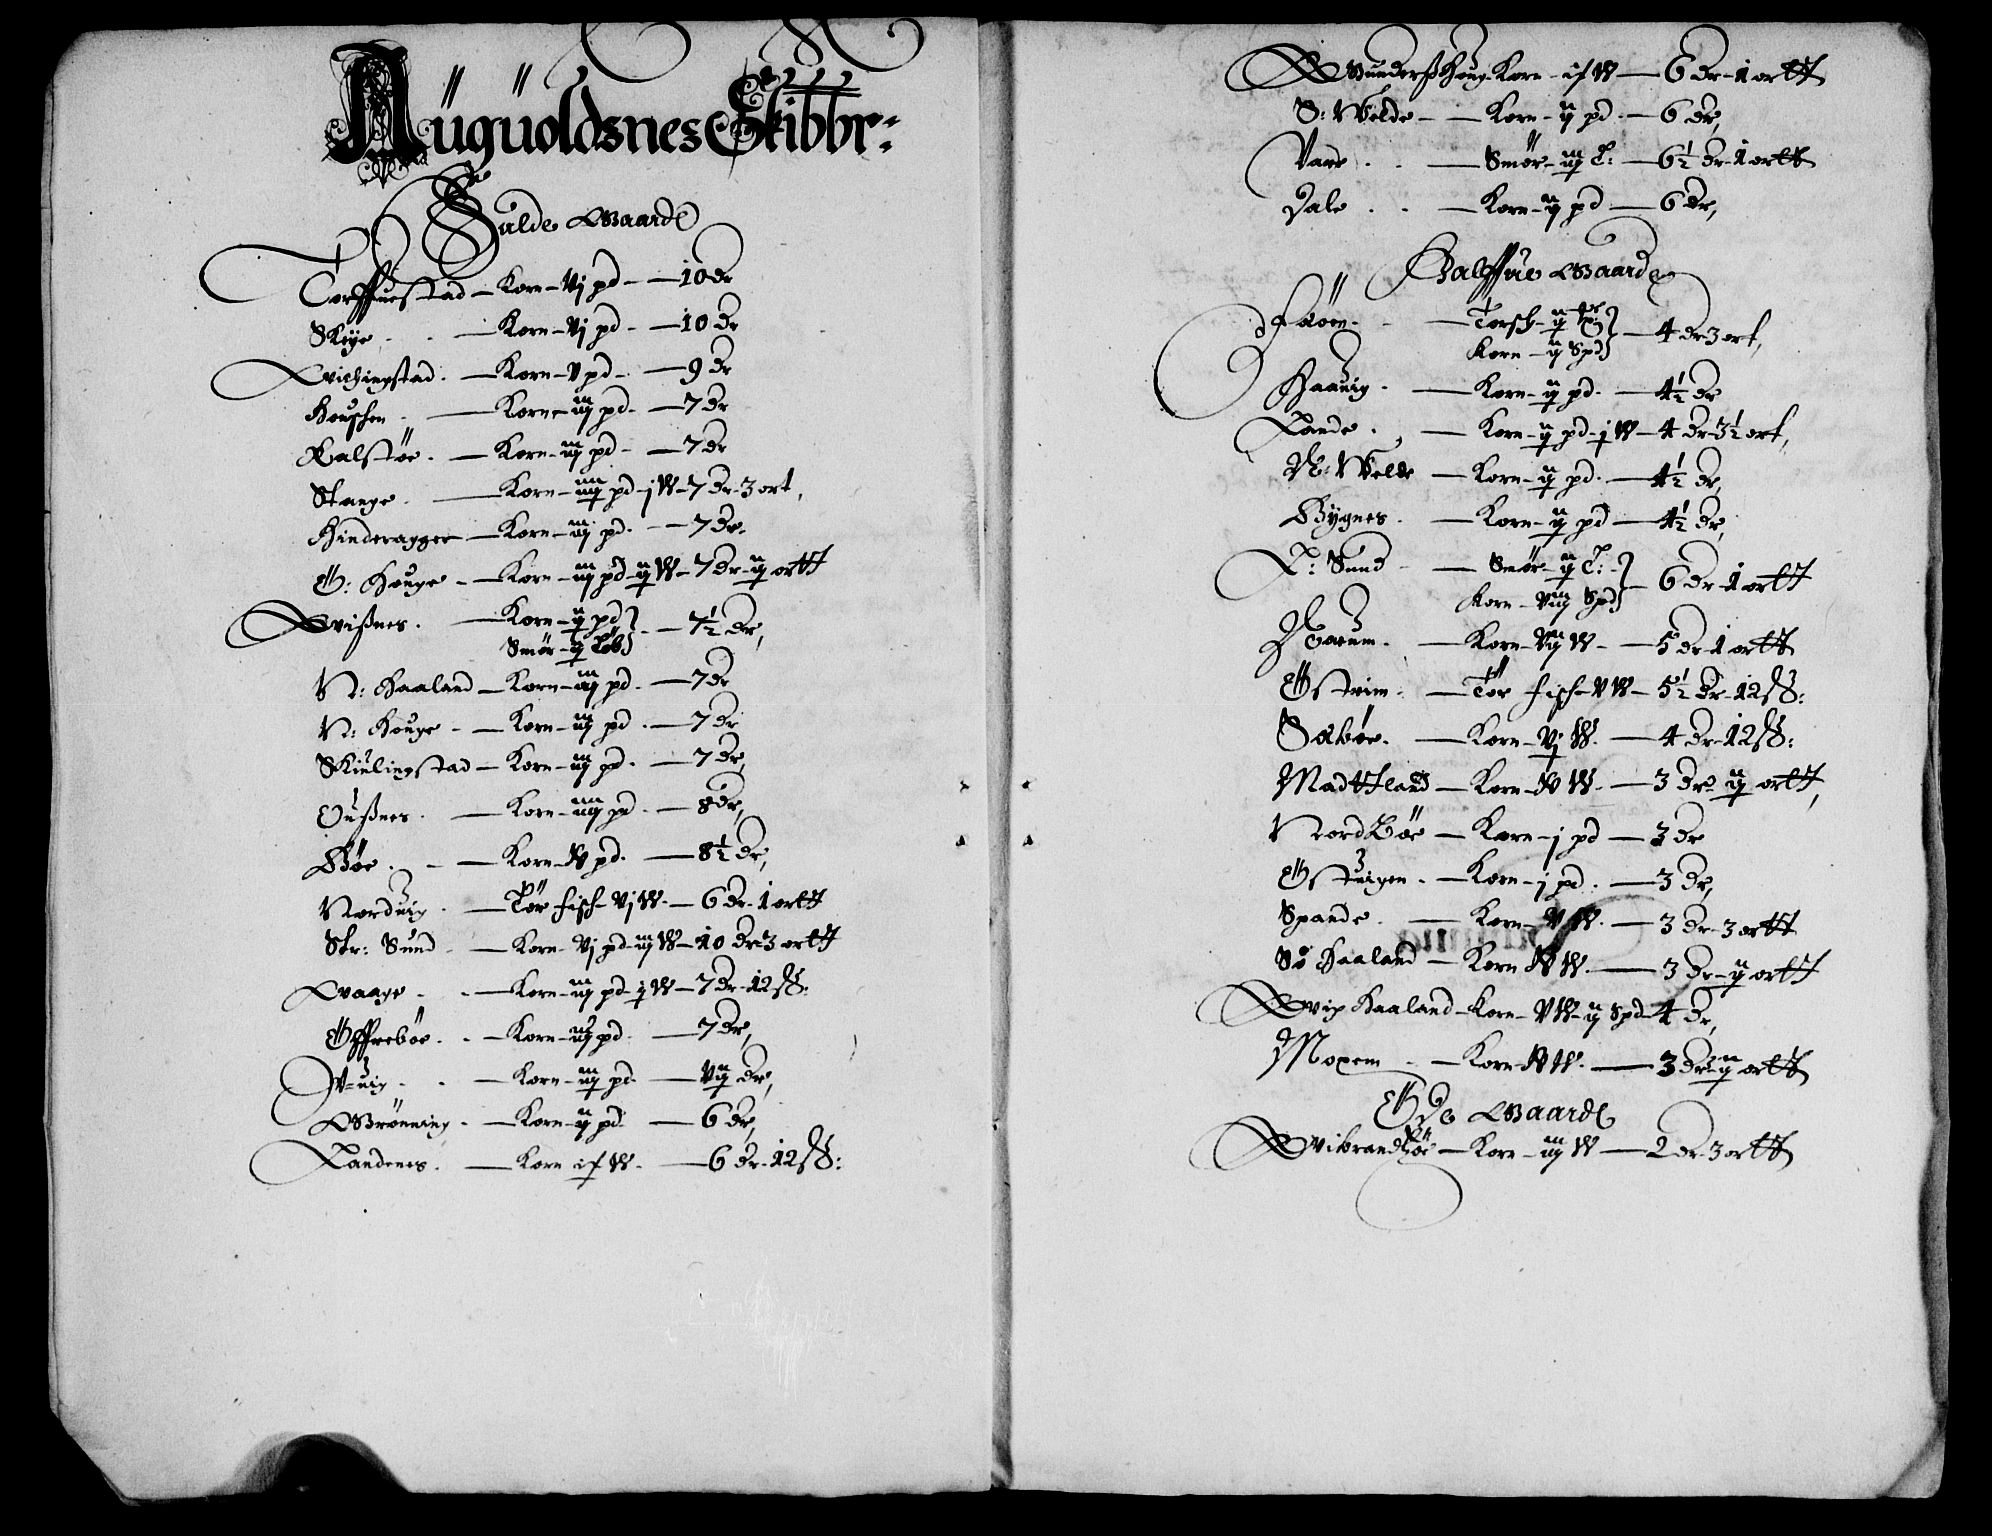 Auguoldsnes Skibbr:
Fulde Gaarde
Torffuestad - Korn - vj pd - 10 dr
Skeye - Korn - vj pd - 10 dr
Wichingstad - Korn - v pd - 9 dr
Houschen - Korn - iij pd - 7 dr
Kalstøe - Korn - iij pd - 7 dr
Stange - Korn - iiij pd - j W - 7 dr - 3 ort,
Hinderagger - Korn - iij pd - 7 dr.
Ö: Houge - Korn - iij pd - ij W - 7 dr - ij ortt
Wißnes - Korn - ij pd }
Smör - ij Løb } - 7½ dr,
N: Haaland - Korn - iij pd - 7 dr
N: Houge - Korn - iij pd - 7 dr
Skielingstad - Korn - iij pd - 7 dr,
Oußnes - Korn - iiij pd - 8 dr,
Bøe - Korn - pd - 8½ dr,
Norduig - Tör fisch - vj W - 6 dr - 1 ortt
Str: Sund - Korn - vj pd - iij W - 10 dr - 3 ortt
Waage - Korn - iij pd - j W - 7 dr - 12 ß:
Öffrebøe - Korn - iij pd - 7 dr,
Vig - Korn - iij pd - vij dr,
Grönning - Korn - ij pd - 6 dr,
Sandenes - Korn W - 6 dr - 12 ß:
Gunderßhoug - Korn W - 6 dr - 1 ortt
S: Velde - Korn - ij pd - 6 dr,
Vare - Smör - iij L: - 6½ dr - 1 ortt
Dale - Korn - ij pd - 6 dr,
Halffue Gaarde
Føöen - Torsch - ij }
Korn - ij Spd } - 4 dr 3 ort,
Haauig - Korn - ij pd - 4½ dr
Sande - Korn - ij pd - j W - 4 dr - 3½ ort,
N: Velde - Korn - ij pd - 4½ dr,
Bygnes - Korn - ij pd - 4½ dr,
S: Sund - Smör - ij L: }
Korn - viij Spd } - 6 dr - 1 ortt
Korn - W - 5 dr - 1 ortt
Östrim - Tör fisch - v W - 5½ dr - 12 ß:
Sæbøe - Korn - vj W - 4 dr - 12 ß:
Mattland - Korn - W - 3 dr - ij ortt,
Nordbøe - Korn - j pd - 3 dr
Östuigen - Korn - j pd - 3 dr,
Spande - Korn - v W - 3 dr - 3 ortt
Sø Haaland - Korn W - 3 dr - ij ortt
Haaland - Korn - v W - ij Spd - 4 dr,
Korn W - 3 dr - ij ortt
Öde Gaarde
Wibrandzøe - Korn - iij W - 2 dr - 3 ortt